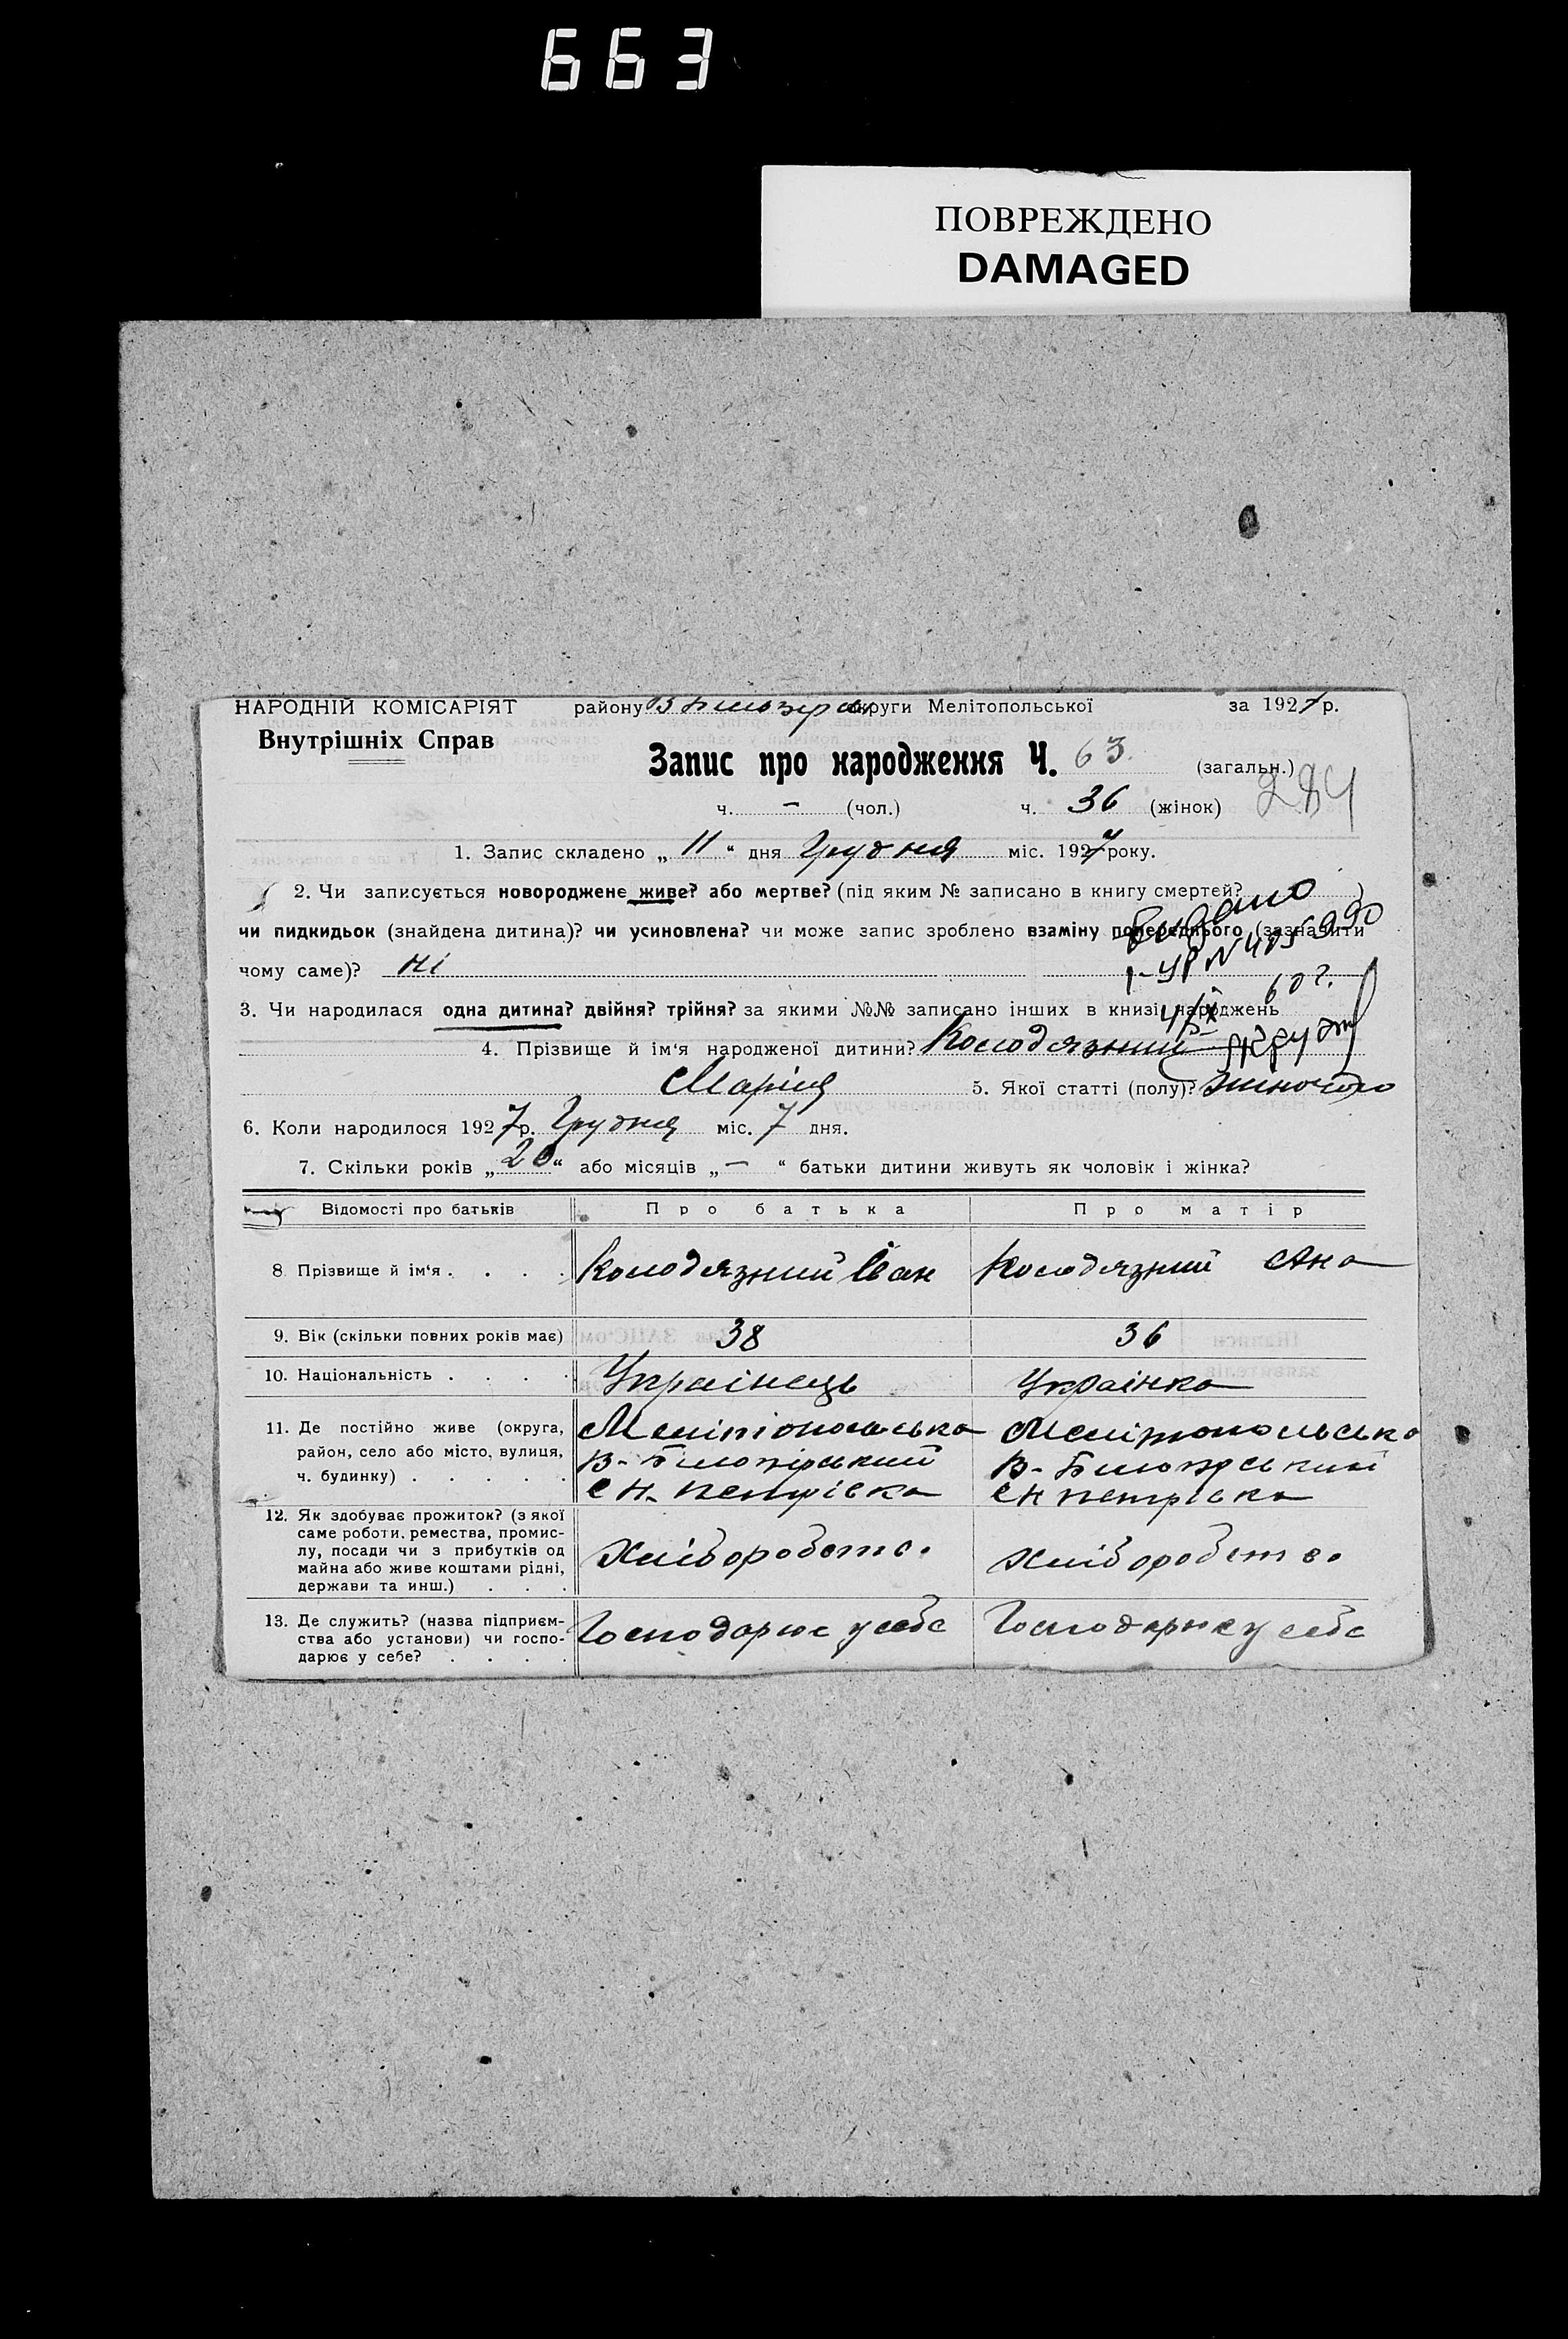 663
ПОВРЕЖДЕНО
DAMAGED
НАРОДНІЙ КОМІСАРІЯТ району округи Мелітопольської за 1927 р.
Внутрішніх Справ
Запис про народження Ч. 63 (загальн.)
ч. – (чол.) ч. 36 (жінок) 284
1. Запис складено „ 11 “ дня Грудня міс. 1927 року.
2. Чи записується новороджене живе? або мертве? (під яким № записано в книгу смертей? )
Видано
чи пидкидьок (знайдена дитина)? чи усиновлена? чи може запис зроблено взаміну попереднього (зазначити
чому саме)? Ні
3. Чи народилася одна дитина? двійня? трійня? за якими №№ записано інших в книзі народжень
4. Прізвище й ім‘я народженої дитини? Колодязний
Марія 5. Якої статті (полу)? жіночого
6. Коли народилося 1927 р. Грудня міс. 7 дня.
7. Скільки років „ 20 “ або місяців „ – “ батьки дитини живуть як чоловік і жінка?
Відомості про батьків Про батька Про матір
8 Прізвище й ім‘я . . . . Колодязний Іван Колодязний Ана
9. Вік (скільки повних років має) 38 36
10. Національність . . . . Украінець Украінка
11. Де постійно живе (округа, Мелітопольська Мелітопольська
район, село або місто, вулиця, В-Білозірський В-Білозірський
ч. будинку) . . . . . с Н. Петрівка с Н Петрівка
12. Як здобуває прожиток? (з якої
саме роботи, ремества, промис-
лу, посади чи з прибутків од Хліборобство. Хліборобство.
майна або живе коштами рідні,
держави та инш.) . . .
13. Де служить? (назва підприєм- Господарює у себе Господарює у себе
ства або установи) чи госпо-
дарює у себе? . . . .